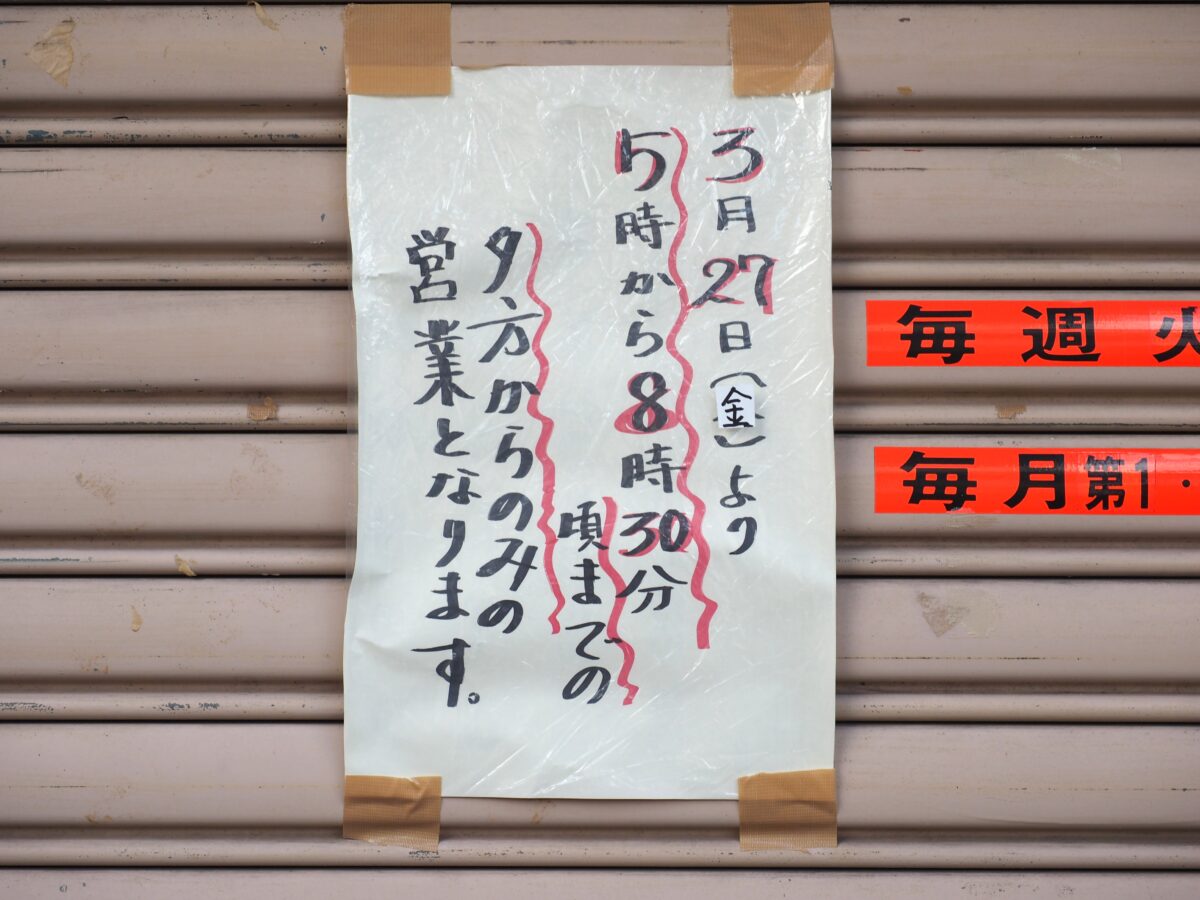 3月27日(金)より
5時から8時30分
頃までの
夕方からのみの
営業となります。
毎週火
毎月第1・